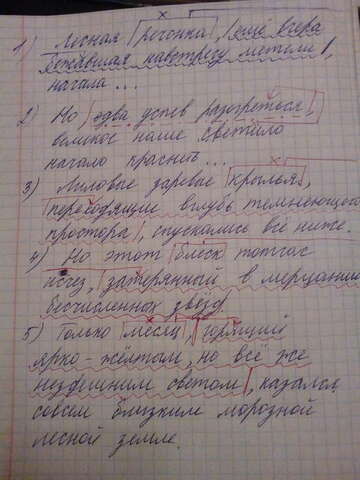 1) Лесная речонка, ещё вчера
бежавшая навстречу метели,
начала ...
2) Но едва успев разогреться,
великое наше светило
начало краснеть ...
3) Лиловые заревые крылья,
переходящие вглубь темнеющего
простора, спускались всё ниже.
4) Но этот блеск тотчас
исчез, затерянный в мерцании
бесчисленных звёзд.
5) Только месяц, горящий
ярко-жёлтым, но всё же
нездешним светом, казался
совсем близким морозной
лесной земле.